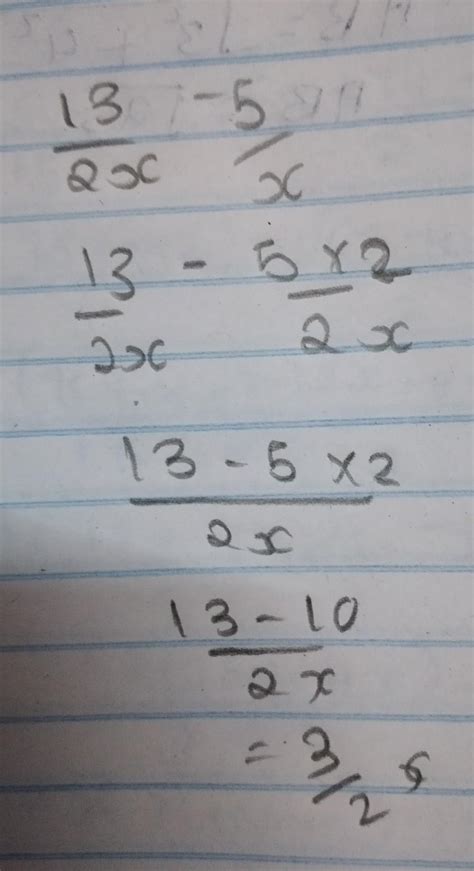 13/2x - 5/x
13/2x - 5 × 2/2x
13 - 5 × 2/2x
13 - 10/2x
= 3/2